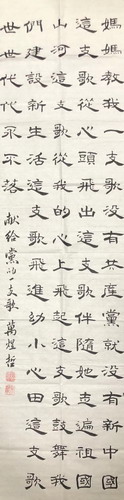 媽媽教我一支歌沒有共產黨就沒有新中國
這支歌從心頭飛出這支歌伴隨她走遍祖國
山河這支歌從我的心上飛起這支歌鼓舞我
們建設新生活這支歌飛進幼小心田這支歌
世世代代永不落
献給黨的一支歌 萬煌哲